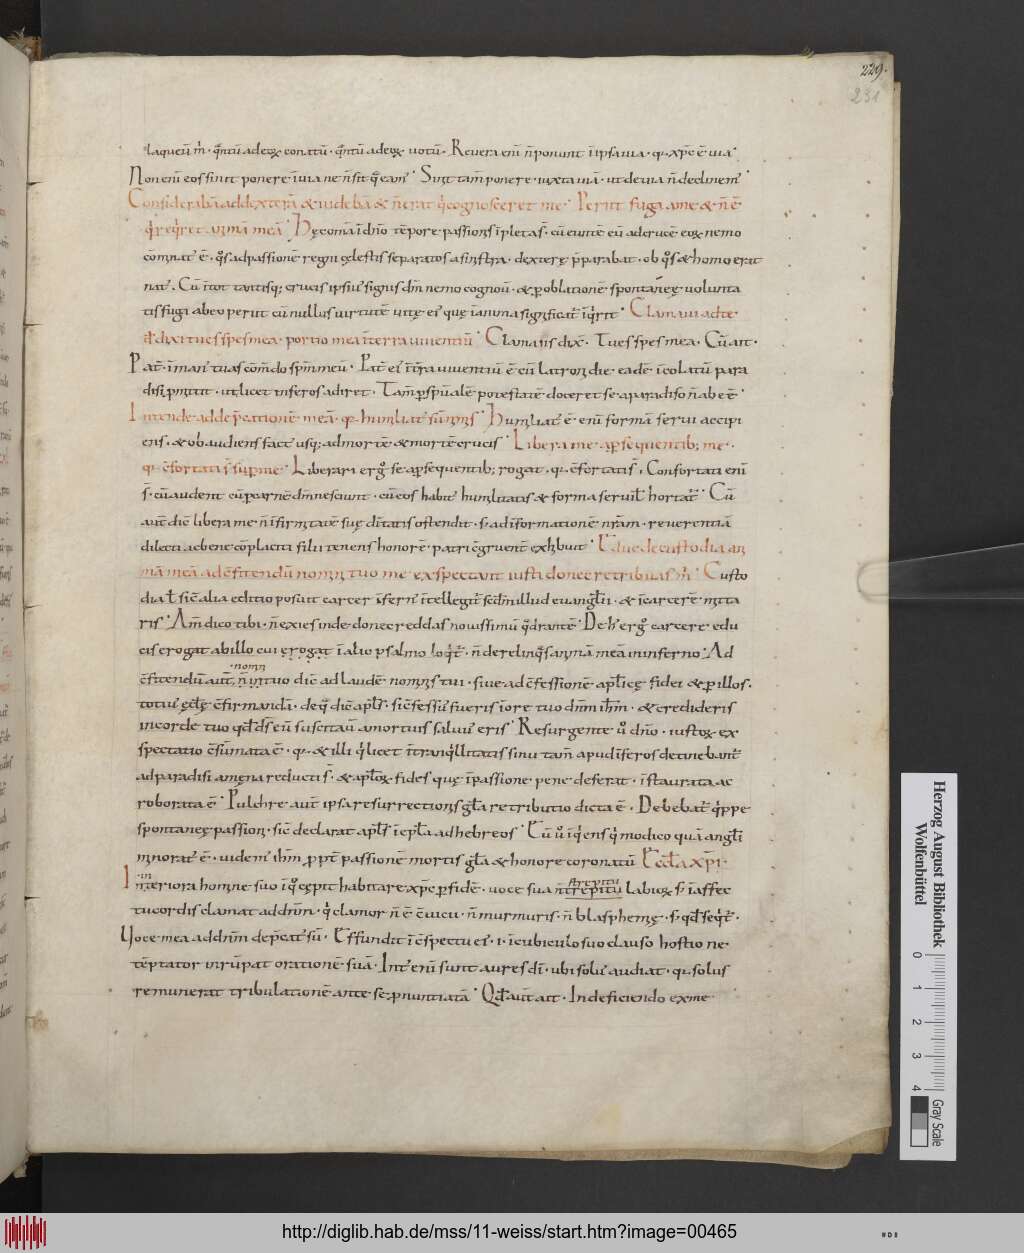 229.
231
laqueū m̄ · q̄ntū ad eoꝝ conatū · q̄ntū ad eoꝝ uotū · Reuera enī n̄ ponunt ī ipsa uia · q̄a xp̄c ē uia
Non enī eos sinit ponere ī uia ne n̄ sit q̄ eam · Sinit tam̄ ponere · iuxta uiā · ut de uia n̄ declinem
Considerabā ad dexterā & uidebā & n̄ erat q̇ cognosceret me · Periit fuga a me & n̄ ē
q̇ req̇ret animā meā · Hec omā ī dn̄io tēpore passionis īpletas · cū euntē eū ad crucē eoꝝ nemo
comitat ē · q̊s ad passionē regni celestis separatos a sinistra · dexterę p̄parabat · ob q̊s & homo erat
nat · Cū ī tot tantisq; crucis ipsius signis dm̄ nemo cognou · & ꝑ oblationē spontaneę uolunta
tis fuga ab eo periit cū nullus uirtutē uitę ei quę ī anima significat īq̇rit · Clamaui ad te
dn̄e dixi tu es spes mea · portio mea ī terra uiuentiū · Clamasis dix · Tu es spes mea · Cū ait ·
Pat · ī man tuas com̄do spm̄ meū · Pat ei tr̄ra uiuentiū ē cū latroni die · eadē ī colatū para
disi ꝓmittit · ut licet inferos adiret · Tam̄ ꝑ spualē potestatē doceret se a paradiso n̄ abeē ·
Intende ad dep̄cationē meā · q̄a humiliat sū nimis · Humiliat ē enī formā serui accipi
ens · & obaudiens fact usq; ad mortē & mortē crucis · Libera me a ꝑsequentib; me ·
q̄a cfortati s̄ suꝑ me · Liberari ergo se a ꝑsequentib; rogat · q̄a cfortati s̄ · Confortati enī
s̄ · cū audent cū ꝑ carnē dm̄ nesciunt · cū eos habit humilitatis & forma seruil hortat · Cū
aut dic libera me n̄ ī firmitatē suę diuitatis ostendit · s̄ ad īformationē nr̄am · reuerentiā
dilecti ac bene cōplaciti filii tenens honorē · patri cgruent exhibuit · Educ de custodia ani
mā meā ad cfitendū nomini tuo me expectant iusti donec retribuas m̄ · Custo
dia ł sic alia editio posuit carcer ī fern ītellegit scd̄m illud euangłii · & ī carcerē mitta
ris · Am̄ dico tibi · n̄ exies inde donec reddas nouissimū q̄drantē · De h ergo carcere edu
ci se rogat ab illo cui ę rogat ī alio psalmo loq̇t · n̄ derelinq̊s animā meā in inferno · Ad
nomi
cfitendū aut · n̄ in tuo dic ad laudē nominis tui · siue ad cfessionē apłicę fidei & ꝑ illos ·
totius ęcłę cfirmandā · de q̊ dic apłs · si cfessus fueris ī ore tuo dnm̄ ihm̄ · & credideris
in corde tuo qd̄ ds̄ eū suscitau a mortuis saluus eris · Resurgente ů dn̄o · iustoꝝ ex
spectatio csūmata ē · q̄a & illi q̇ licet ī tranq̇llitatis sinu tam̄ apud īferos detinebant
ad paradisi amęna reducti s̄ · & apłoꝝ fides quę ī passione pene deserat · ī staurata ac
roborata ē · Pulchre aut ipsa resurrectionis głā retributio dicta ē · Debebat q̇ppe
spontaneę passion · sic declarat apłs ī epłā ad hebreos · Eū ů īq̇ens q̇ modico quā angłi
minorat ē · uidem ihm̄ ꝓpt passionē mortis głā & honore coronatū Ecclā xp̄i ·
in strepitu
Interiora homine suo ī q̊ cępit habitare xp̄c ꝑ fidē · uoce sua n̄ trepitu labioꝝ s̄ ī affec
tu cordis clamat ad dnm̄ · q̇ clamor n̄ ē cuicii · n̄ murmuris · n̄ blasphemę · s̄ qd̄ seq̇t ·
Uoce mea ad dnm̄ dep̄cat sū · Effundit ī cspectu ei · i · ī cubiculo suo clauso hostio ne
tēptator irrūpat orationē suā · Int enī sunt aures dī · ubi solus audiat · q̄a solus
remunerat tribulationē ante se ꝓnuntiatā · Qd̄ aut ait · In deficiendo ex me
Herzog August Bibliothek
Wolfenbüttel
0 1 2 3 4
Gray Scale
http://diglib.hab.de/mss/11-weiss/start.htm?image=00465